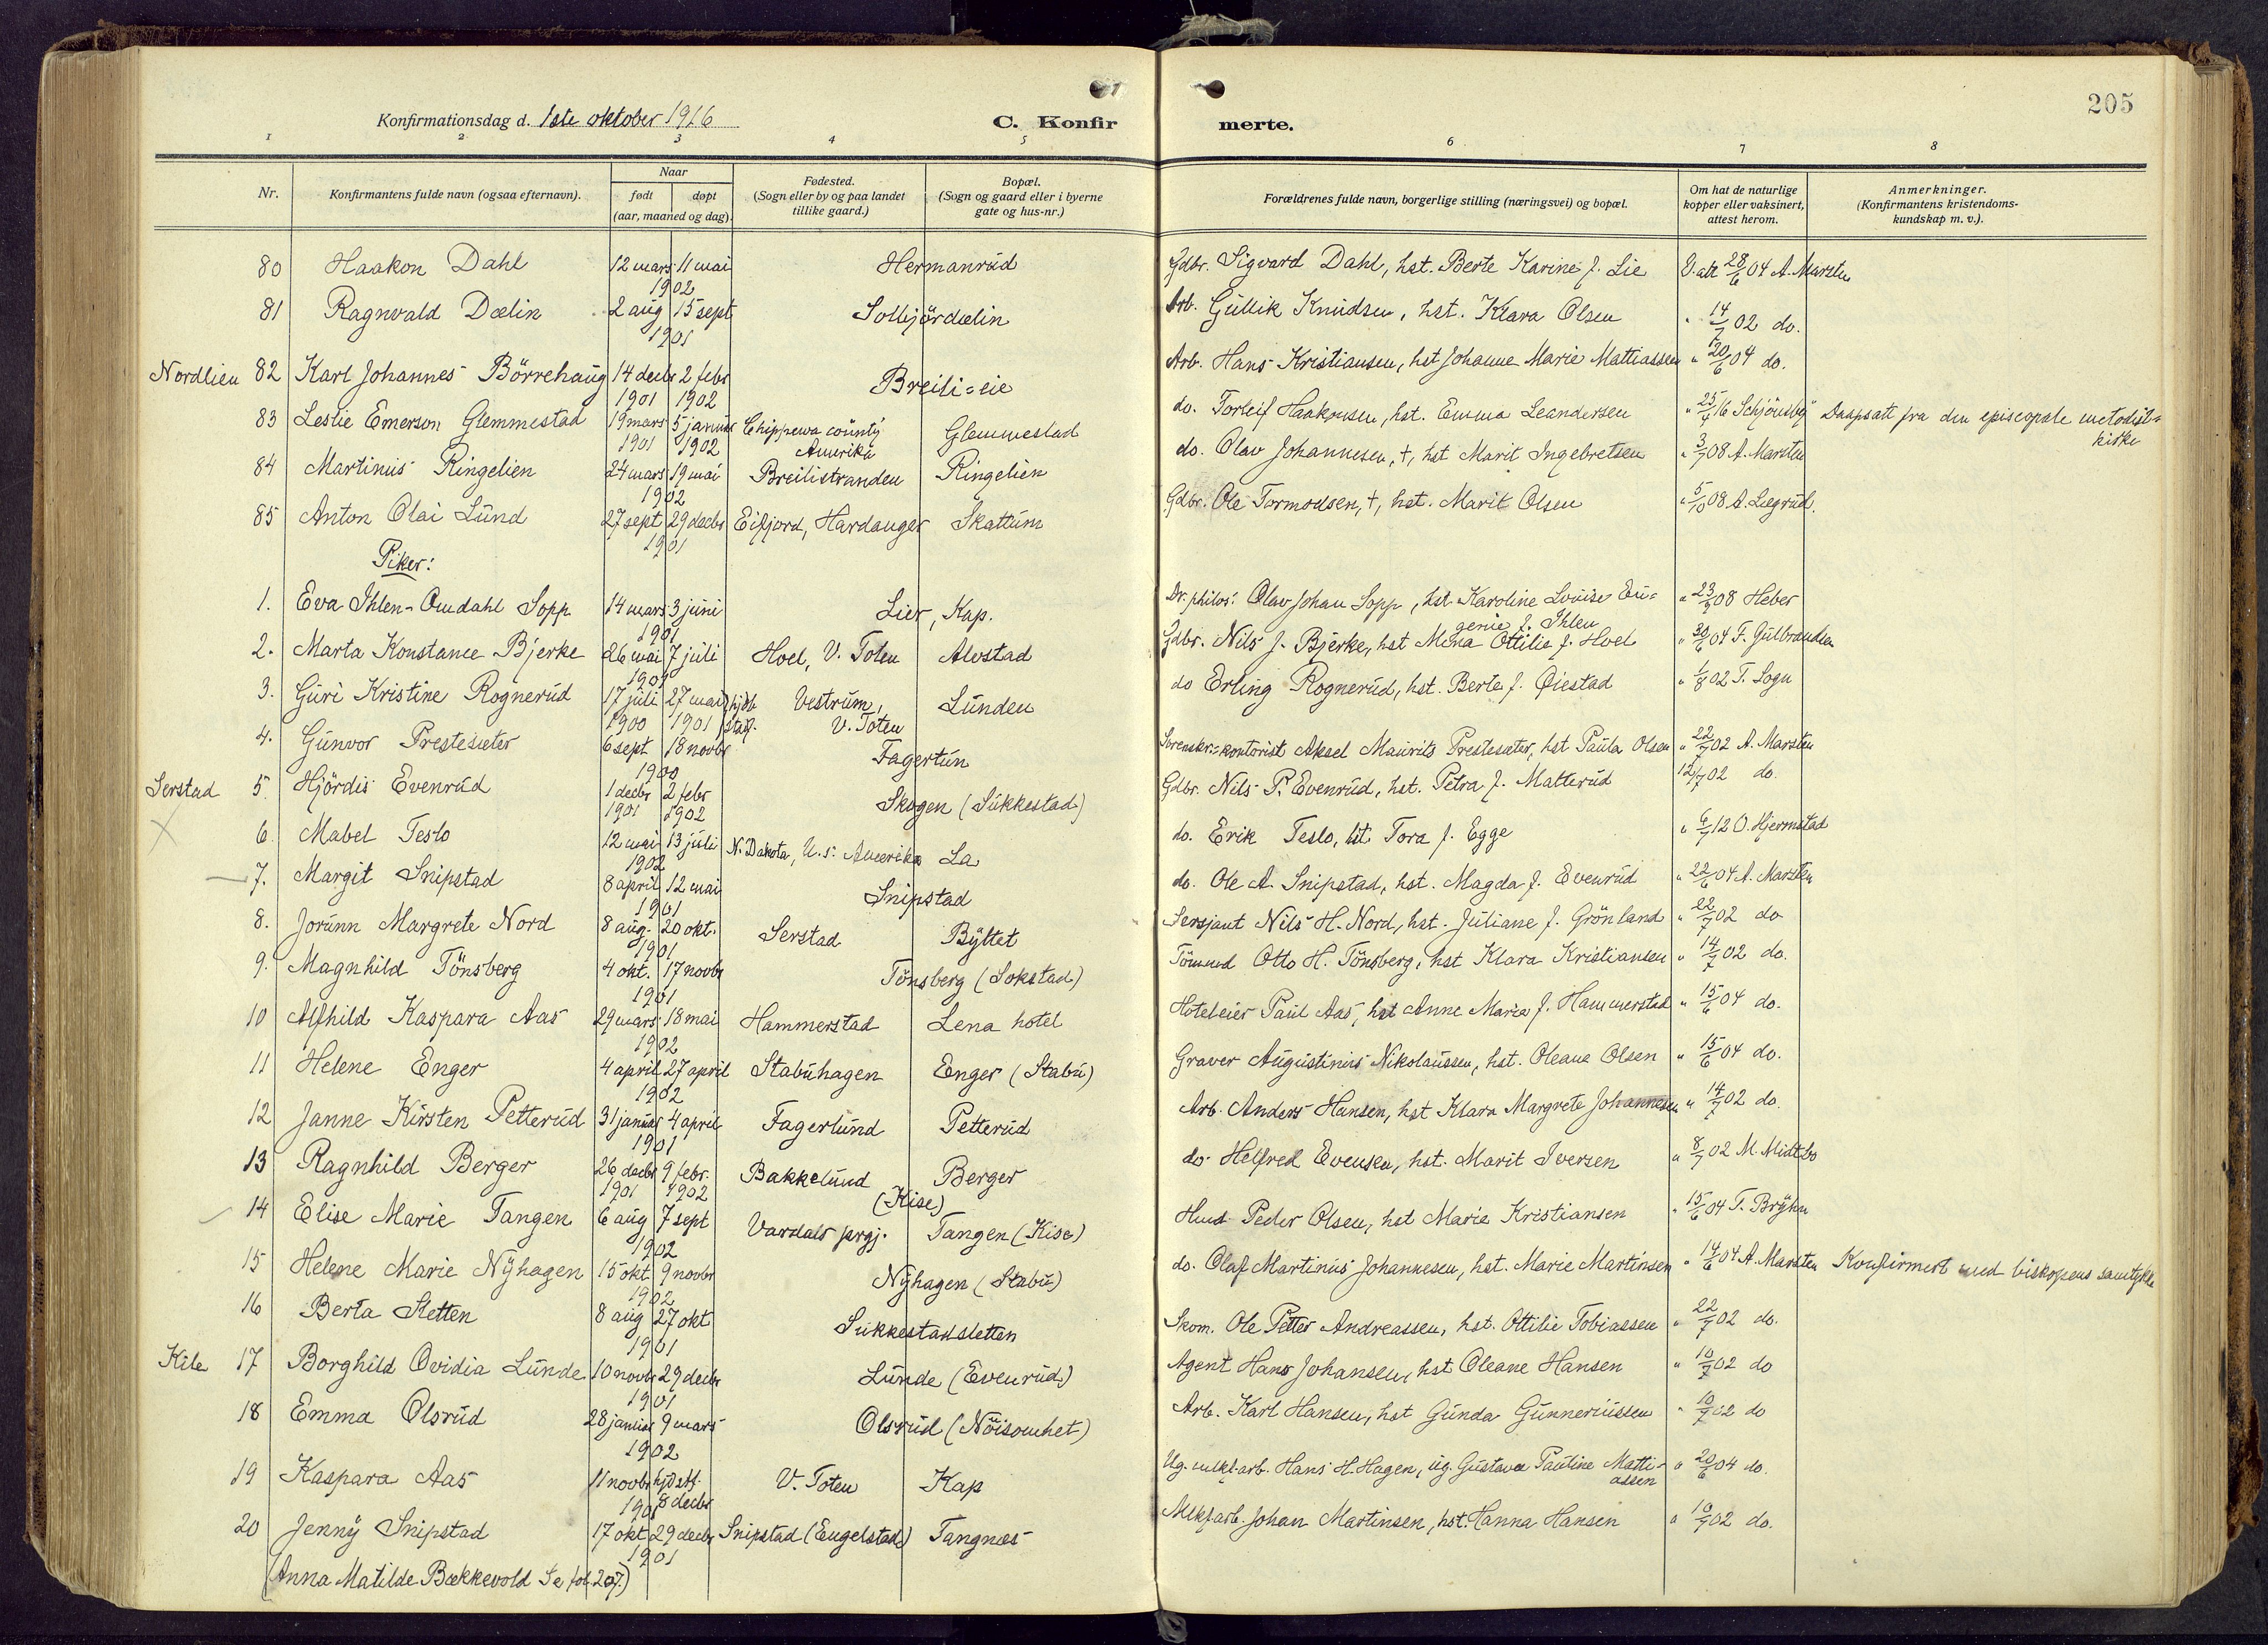 205
Konfirmationsdag d. 1ste oktober 1916
C. Konfir merte.
1 2 3 4 5 6 7 8
Nr. Konfirmantens fulde navn (ogsaa efternavn). Naar født døpt (aar, maaned og dag). Fødested. (Sogn eller by og paa landet tillike gaard.) Bopæl. (Sogn og gaard eller i byerne gate og hus-nr.) Forældrenes fulde navn, borgerlige stilling (næringsvei) og bopæl. Om hat de naturlige kopper eller vaksinert, attest herom. Anmerkninger. (Konfirmantens kristendoms-kundskap m. v.).
80 Haakon Dahl 12 mars 11 mai 1902 Hermanrud Gdbr. Sigvard Dahl, hst. Berte Karine f. Lie V. att 28/6 04 A. Marsten
81 Ragnvald Dælin 2 aug 15 sept 1901 Solbjördælin Arb. Gullik Knudsen, hst. Klara Olsen " 14/7 02 do.
Nordlien 82 Karl Johannes Börrehaug 14 decbr 1901 2 febr 1902 Breili=eie Arb. Hans Kristiansen, hst Johanne Marie Mattiassen " 20/6 04 do.
83 Leslie Emerson Glemmestad 19 mars 1901 5 januar 1902 Chippewa county Amerika Glemmestad do. Torleif Haakensen, hst. Emma Leandersen " 25/9 16 Schjönsby Daapsatt fra den episcopale metodist=kirke
84 Martinus Ringelien 24 mars 19 mai 1902 Breilistranden Ringelien do. Olav Johannesen, †, hst Marit Ingebretsen " 3/7 08 A. Marsten
85 Anton Olai Lund 27 sept 29 decbr 1901 Eifjord, Hardanger Skattum Gdbr. Ole Tormodsen, †, hst. Marit Olsen " 5/10 08 A. Liegrud.
Piker:
1. Eva Ihlen-Omdahl Sopp 14 mars 3 juni 1901 Lier, Kap. Dr. philos. Olav Johan Sopp, hst. Karoline Lovise Eugenie f. Ihlen " 23/9 08 Heber
2. Marta Konstance Bjerke 26 mai 7 juli 1901 Hoel, V. Toten Alvstad Gdbr. Nils J. Bjerke, hst Mina Ottilie f. Hoel " 30/6 04 F. Gulbrandsen
3. Guri Kristine Rognerud 17 juli 1900 27 mai 1901 hjdb. stadf. Vestrum, V. Toten Lunden do Erling Rognerud, hst. Berte f. Øiestad " 1/8 02 T. Sogn
4. Gunvor Prestesæter 6 sept 18 novbr 1900 Fagertun Sorenskr.=kontorist Aksel Maurits Prestesæter, hst Paula Olsen " 22/7 02 A. Marsten
Serstad 5. Hjördis Evenrud 1 decbr 1901 2 febr 1902 Skogen (Sukkestad) Gdbr. Nils P. Evenrud, hst. Petra f. Matterud 12/7 02 do.
6. Mabel Teslo 12 mai 13 juli 1902 N. Dakota, U.S. Amerika La do. Erik Teslo, hst. Tora f. Egge " 6/7 12 O. Hjermstad
7. Margit Snipstad 8 april 12 mai 1901 Snipstad do. Ole A. Snipstad, hst. Magda f. Evenrud " 22/6 04 A. Marsten
8. Jorunn Margrete Nord 8 aug. 20 okt. 1901 Serstad Byttet Sersjant Nils H. Nord, hst. Juliane f. Grönland " 22/7 02 do
9. Magnhild Tönsberg 4 okt. 17 novbr 1901 Tönsberg (Sokstad) Tömmd Otto H. Tönsberg, hst Klara Kristiansen " 14/7 02 do.
10 Alfhild Kaspara Aas 29 mars 18 mai 1902 Hammerstad Lena hotel Hoteleier Paul Aas, hst Anne Marie f. Hammerstad " 15/6 04 do.
11 Helene Enger 4 april 27 april 1902 Stabuhagen Enger (Stabu) Graver Augustinus Nikolaussen, hst. Oleane Olsen " 15/6 04 do.
12 Janne Kirsten Petterud 31 januar 4 april 1901 Fagerlund Petterud Arb. Anders Hansen, hst Klara Margrete Johannesen " 14/7 02 do.
13 Ragnhild Berger 26 decbr 1901 9 febr. 1902 Bakkelund Berger (Kise) do. Helfred Evensen, hst. Marit Iversen " 8/7 02 M. Midtbo
14 Elise Marie Tangen 6 aug 7 sept 1902 Vardals prgj. Tangen (Kise) Hmd Peder Olsen, hst Marie Kristiansen " 15/6 04 T. Bryhn
15 Helene Marie Nyhagen 15 okt 9 novbr 1902 Nyhagen (Stabu) do. Olaf Martinus Johannesen, hst. Marie Martinsen " 14/6 04 A. Marsten Konfirmert med biskopens samtykke
16 Berta Sletten 8 aug 27 okt 1901 Sukkestadsletten Skom. Ole Petter Andreassen, hst. Ottilie Tobiassen " 22/7 02 do.
Kile 17 Borghild Ovidia Lunde 10 novbr 29 decbr 1901 Lunde (Evenrud) Agent Hans Johansen, hst Oleane Hansen " 10/7 02 do
18 Emma Olsrud 28 januar 9 mars 1902 Olsrud (Nöisomhet) Arb. Karl Hansen, hst Gunda Gunneriussen " 10/7 02 do
19 Kaspara Aas 11 novbr hjd stf. 8 decbr 1901 V. Toten Kap Ug. melkf.arb. Hans H. Hagen, ug. Gustava Pauline Mattiassen " 20/6 04 do.
20 Jenny Snipstad 17 okt 29 decbr 1901 Snipstad (Engelstad) Tangnes Melkf.arb. Johan Martinsen, hst. Hanna Hansen " 10/7 02 do.
(Anna Matilde Bækkevold Se fol. 207.)